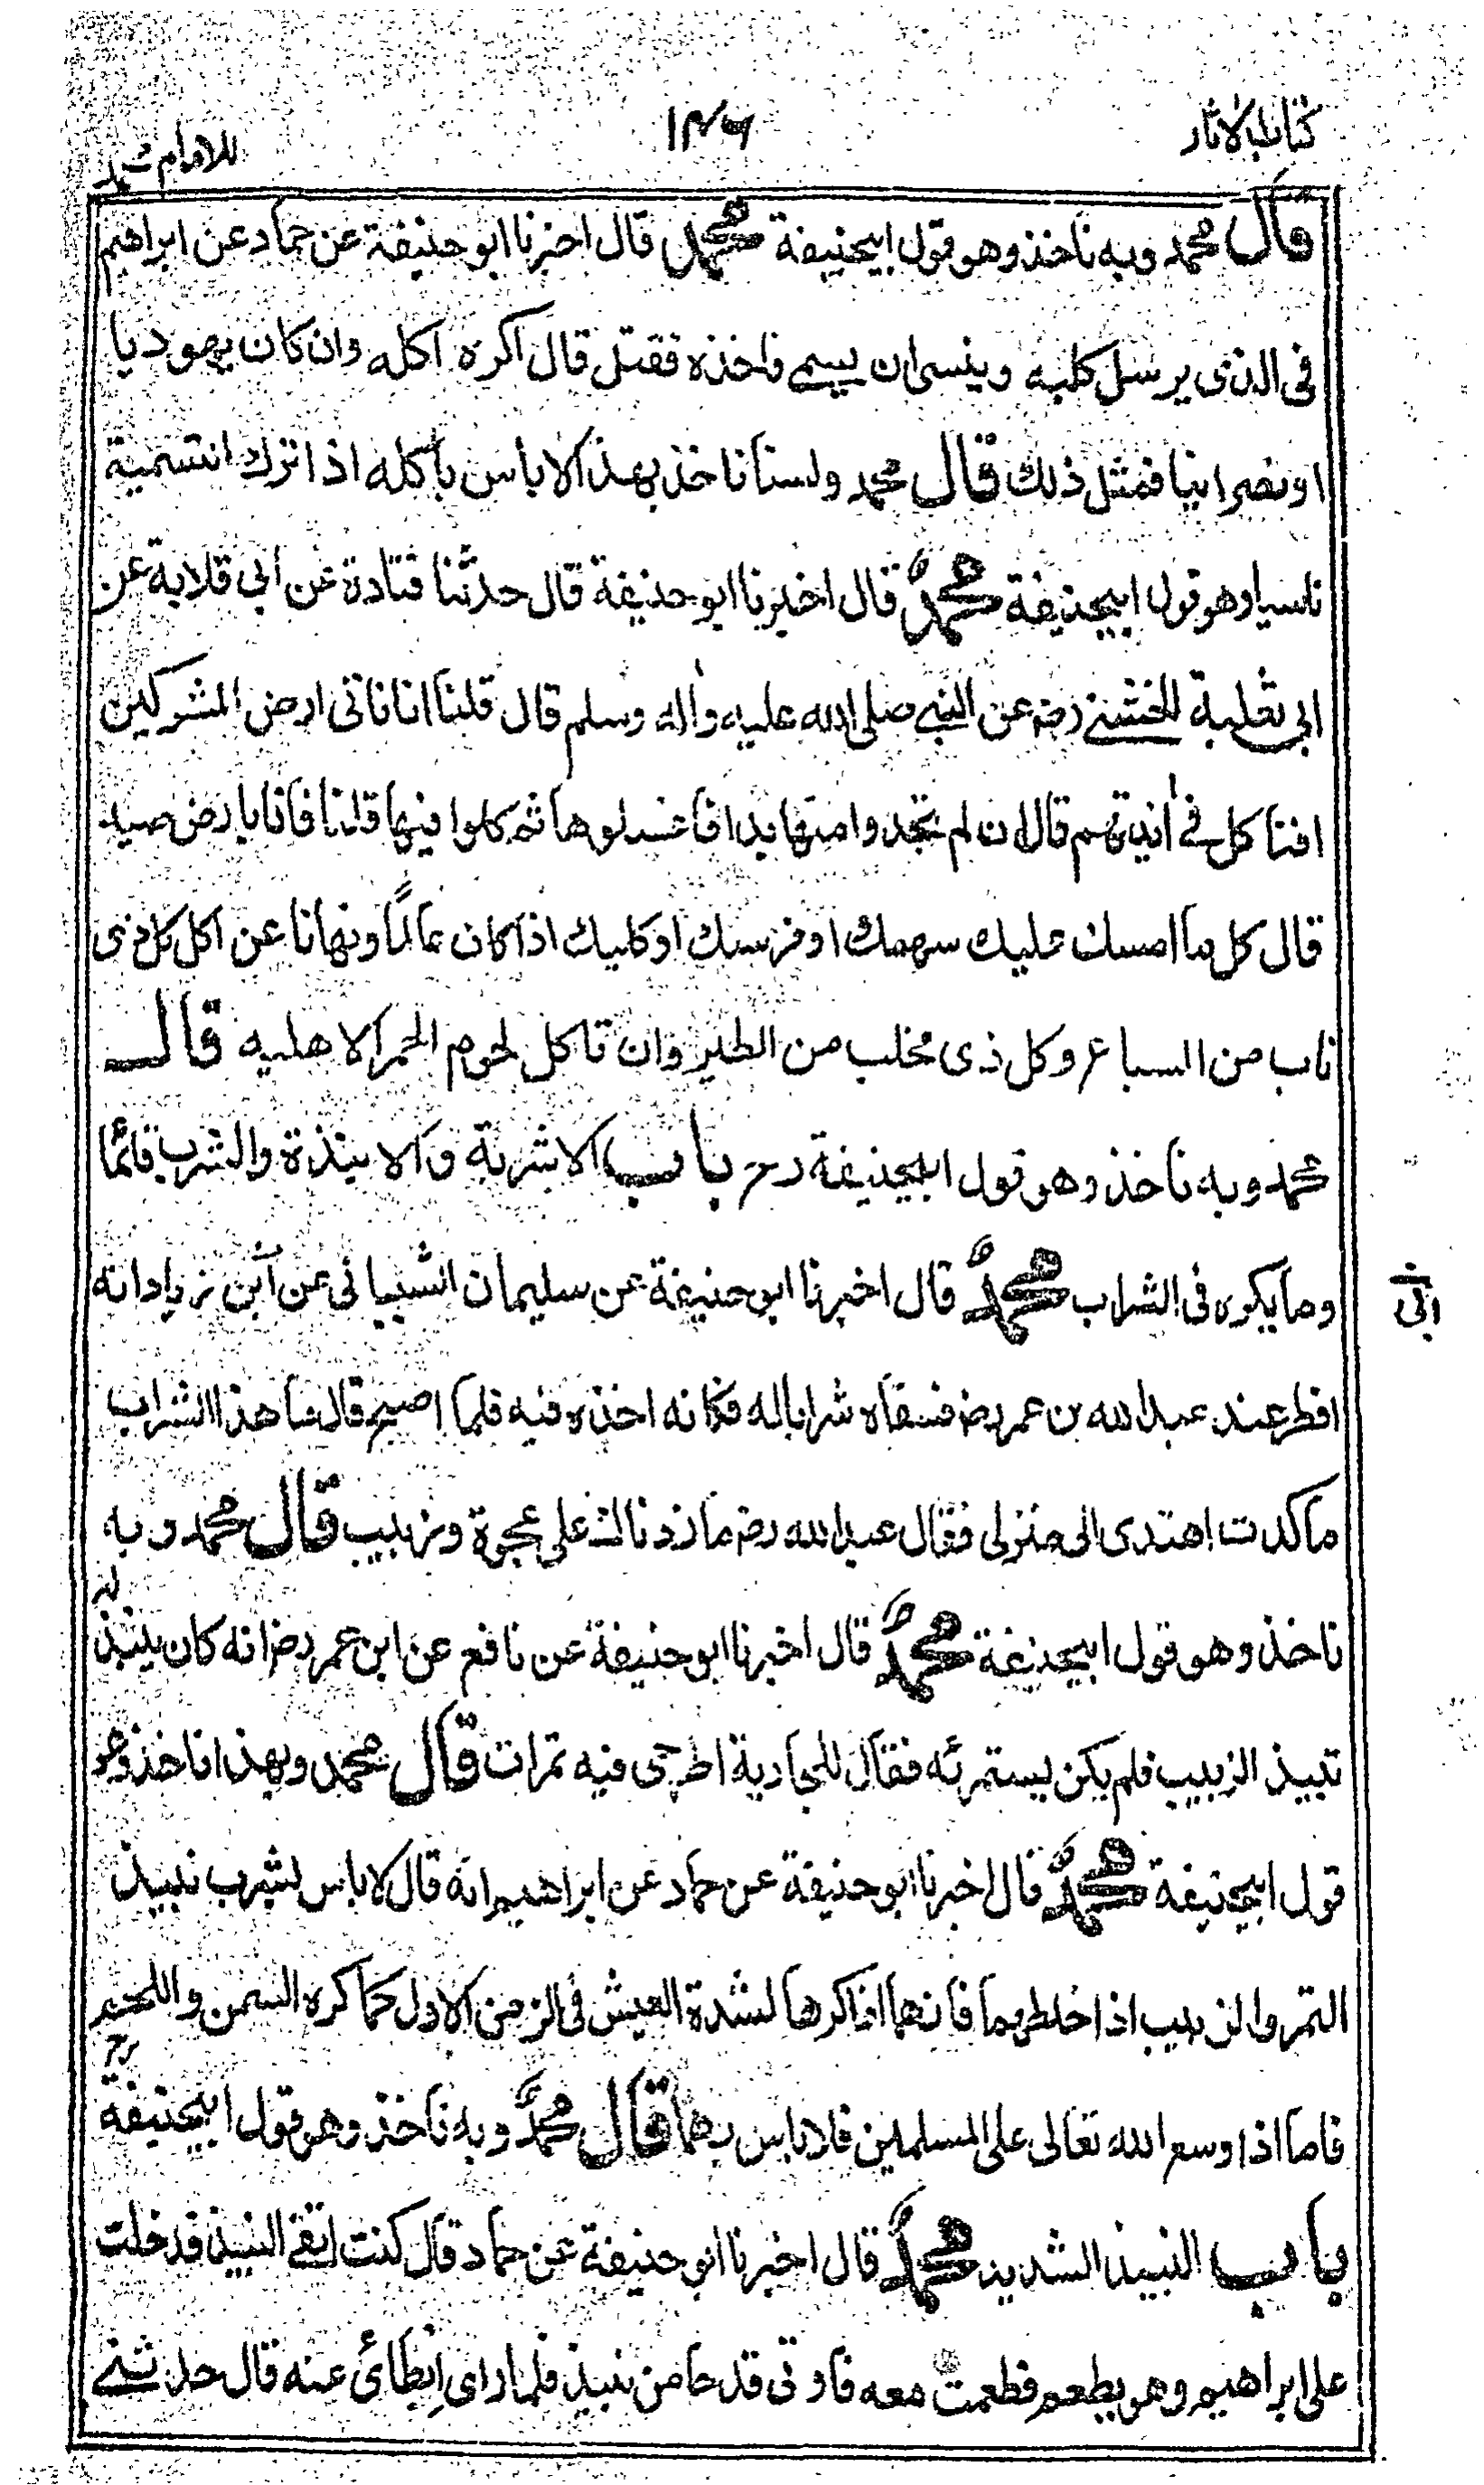 كتاب الاثار
١٤٦
للامام محمد
قال محمد وبه ناخذ وهو قول ابيحنيفة محمد قال اخبرنا ابو حنيفة عن حماد عن ابراهيم
فى الذى يرسل كلبه وينسى ان يسمى فاخذه فقتل قال اكره اكله وان كان يهوديا
او نصرانيا فمثل ذلك قال محمد ولسنا ناخذ بهذا لاباس باكله اذا ترك التسمية
ناسيا وهو قول ابيحنيفة محمد قال اخبرنا ابو حنيفة قال حدثنا قتادة عن ابي قلابة عن
ابى ثعلبة الخشنى رضـ عن النبى صلى الله عليه واله وسلم قال قلنا انا ناتى ارض المشركين
افناكل فى انيتهم قال ان لم تجدوا منها بدا فاغسلوها ثم كلوا فيها قلنا فانا بارض صيد
قال كل ما امسك عليك سهمك او فرسك او كلبك اذا كان عالما ونهانا عن اكل كل ذى
ناب من السباع وكل ذى مخلب من الطير وان تاكل لحوم الحمر الاهلية قال
محمد وبه ناخذ وهو قول ابيحنيفة رح باب الاشربة والانبذة والشرب قائما
وما يكره فى الشراب محمد قال اخبرنا ابو حنيفة عن سليمان الشيبانى عن ابن زياد انه
افطر عند عبد الله بن عمر رضـ فسقاه شرابا له فكانه اخذه فيه فلما اصبح قال ما هذا الشراب
ما كدت اهتدى الى منزلى فقال عبد الله رضـ ما زدناك على عجوة وزبيب قال محمد وبه
ناخذ وهو قول ابيحنيفة محمد قال اخبرنا ابو حنيفة عن نافع عن ابن عمر رضـ انه كان ينبذ له
نبيذ الزبيب فلم يكن يستمرئه فقال للجارية اطرحى فيه تمرات قال محمد وبهذا ناخذ وهو
قول ابيحنيفة محمد قال اخبرنا ابو حنيفة عن حماد عن ابراهيم انه قال لاباس بشرب نبيذ
التمر والزبيب اذا خلطهما فانهما انما كرها لشدة العيش فى الزمن الاول كما كره السمن واللحم
فاما اذا وسع الله تعالى على المسلمين فلا باس بهما قال محمد وبه ناخذ وهو قول ابيحنيفة رح
باب النبيذ الشديد محمد قال اخبرنا ابو حنيفة عن حماد قال كنت اتقى النبيذ فدخلت
على ابراهيم وهو يطعم فطعمت معه فاوتى قدحا من نبيذ فلما راى ابطائى عنه قال حدثنى